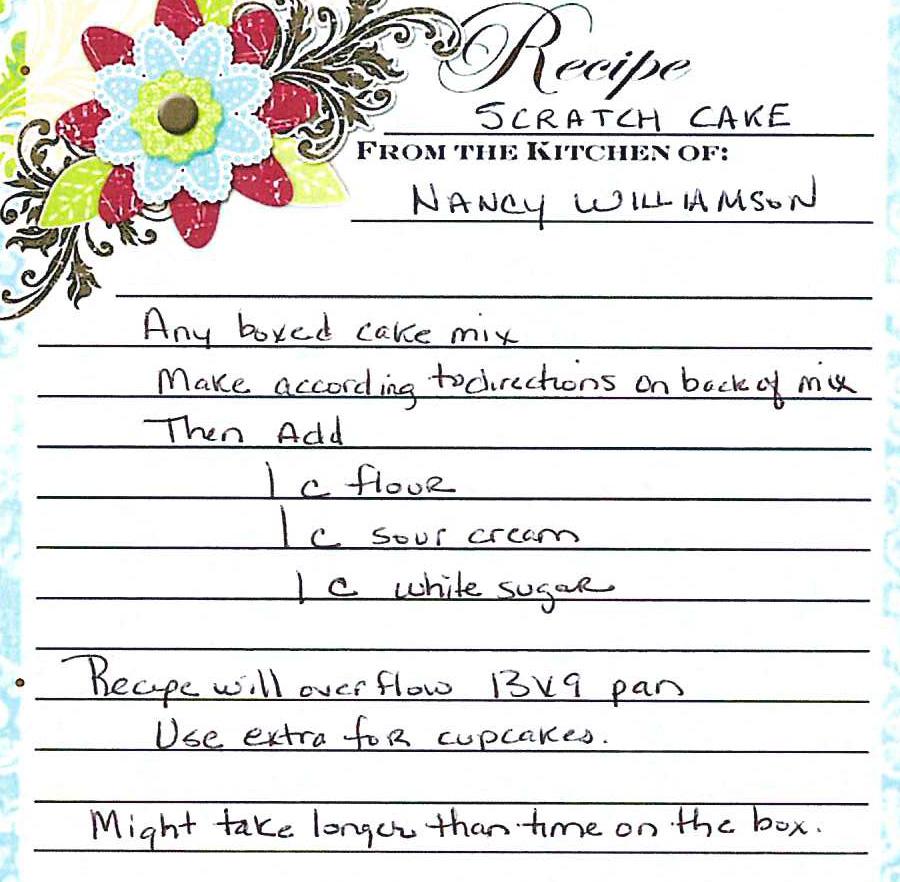 Recipe
SCRATCH CAKE
FROM THE KITCHEN OF:
NANCY WILLIAMSON
Any boxed cake mix
Make according to directions on back of mix
Then Add
1 c flour
1 c sour cream
1 c white sugar
Recipe will overflow 13x9 pan
Use extra for cupcakes.
Might take longer than time on the box.